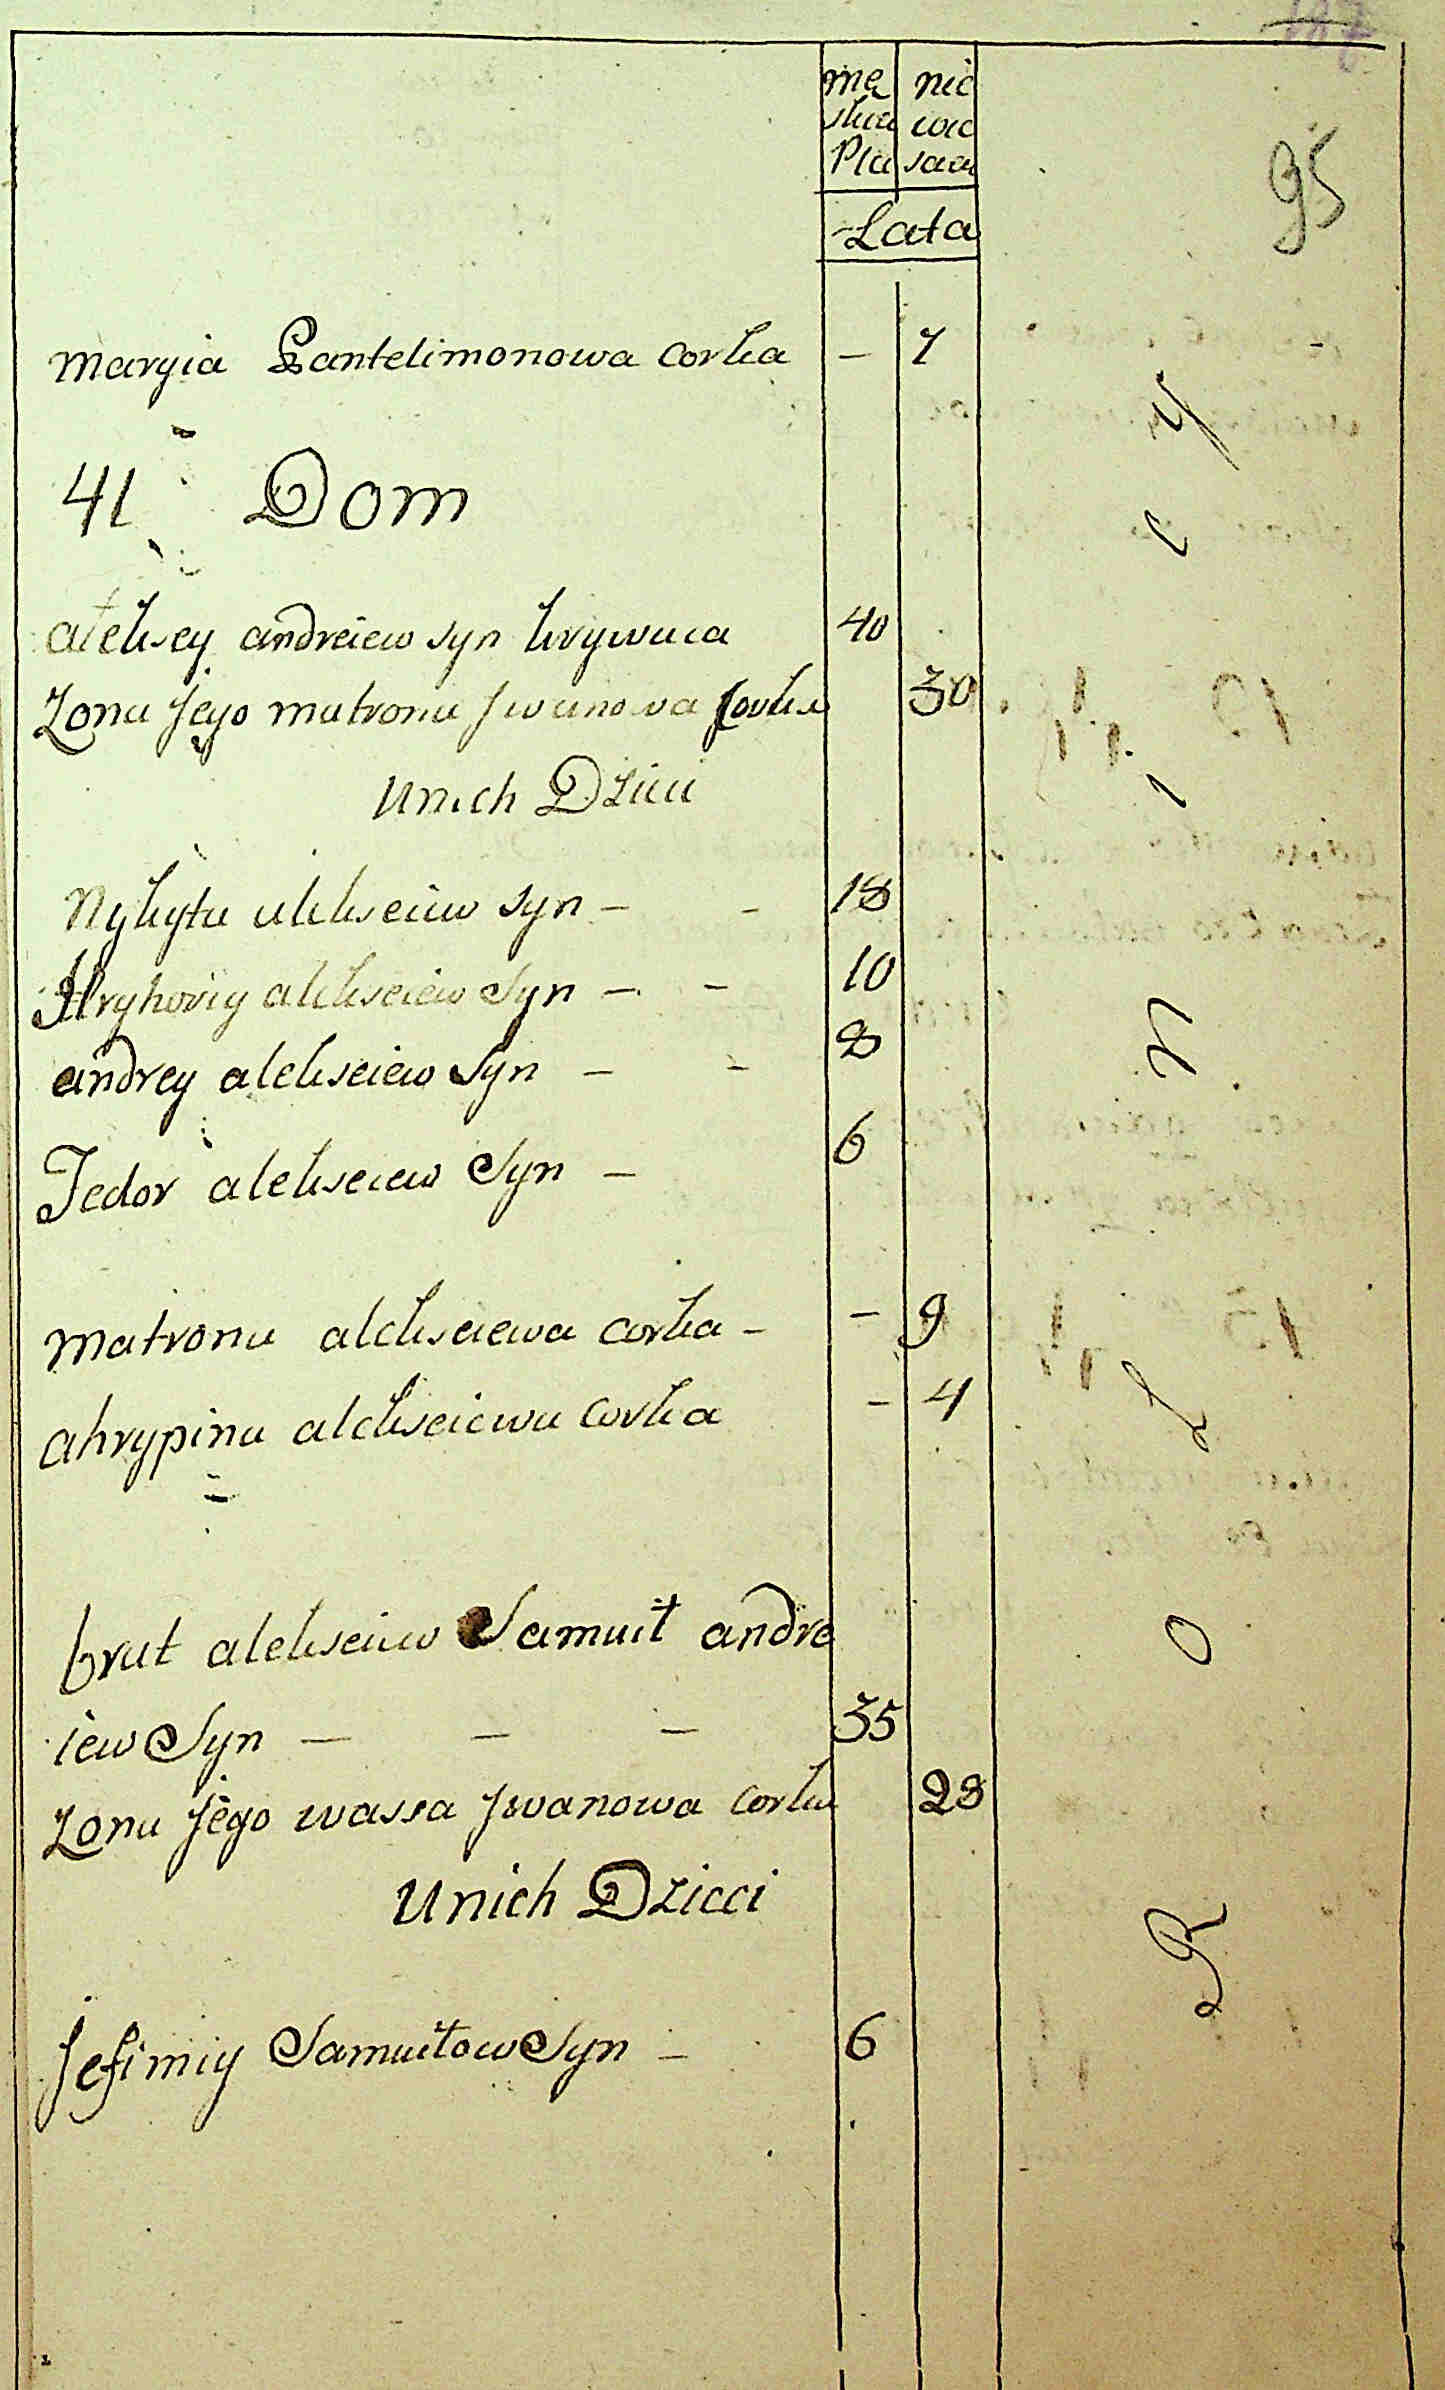 187
95
mę nie
ska wie
Pła sciar
Lata
maryia Pantelimonowa corka - 7
41 Dom
alexsey andreiew syn krywuca 40
Zona Jego matrona Jwanowa Corka 30
Unich Dzieci
Nykyta alekseiew syn - - 18
Hryhoriy alekseiew Syn - - 10
andrey alekseiew Syn - - 8
Fedor alekseiew Syn - 6
matrona alekseiewa corka - - 9
ahrypina alekseiewa corka - 4
brat alekseiew Samuił andre
iew Syn - - - 35
Zona Jego wassa Jwanowa corka 28
Unich Dzieci
Jefimiy Samuiłow Syn - 6